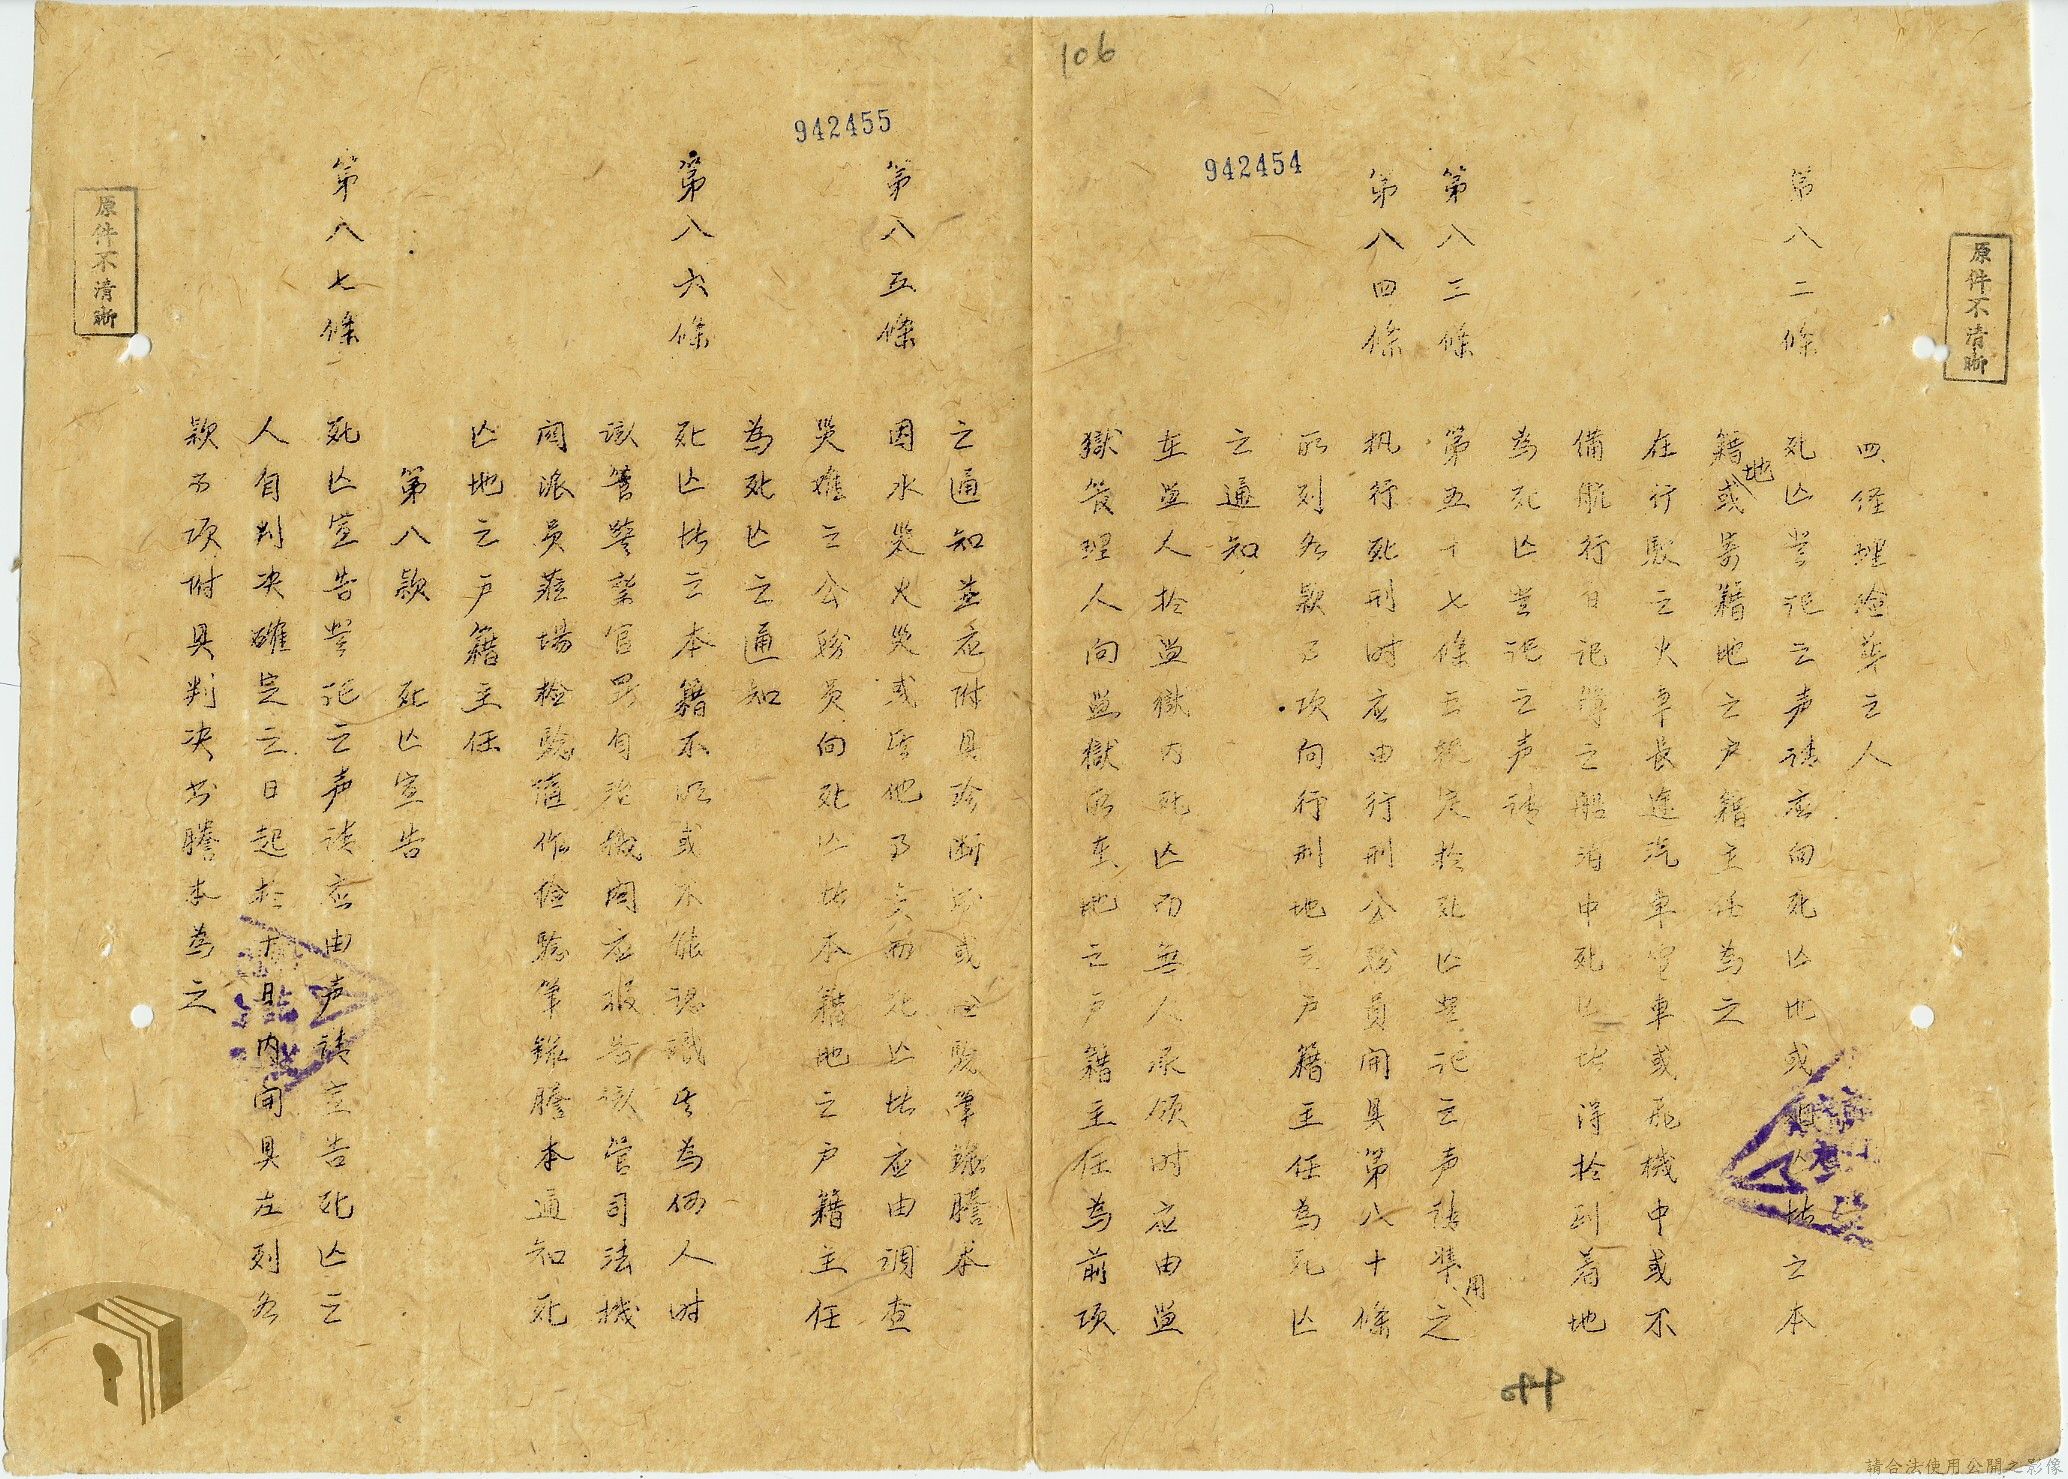 106
942454
原件不清晰
四、经理殮葬之人
第八二條 死亡登记之声请应向死亡地或 之本
籍地或寄籍地之户籍主任為之
在行駛之火車長途汽車 車或飛機中或不
備航行日记簿之船泊中死亡 得於到着地
為死亡登记之声请
第八三條 第五十七條之规定於死亡登记之声请準用之
第八四條 执行死刑时应由行刑公務員開具第八十條
所列各款事项向行刑地之户籍主任為死亡
之通知
在监人於监獄内死亡而無人承领时应由监
獄管理人向监獄所在地之户籍主任為前项
942455
原件不清晰
之通知並应附具诊断书或 驗筆錄謄本
第八五條 因水災火災或其他事变而死亡者应由调查
災难之公務員向死亡者本籍地之户籍主任
為死亡之通知
第八六條 死亡者之本籍不明或不能認識其為何人时
该管警察官署 自治機関应報告该管司法機
関派員蒞場检驗 作检驗筆錄謄本通知死
亡地之户籍主任
第八款 死亡宣告
第八七條 死亡宣告登记之声请应由声请宣告死亡之
人自判决確定之日起於十日内開具左列各
款事项附具判决书謄本為之
請合法使用公開之影像